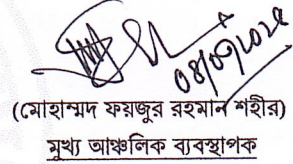 ০৪/০৩/২০২৫
(মোহাম্মদ ফয়জুর রহমান শহীর)
মুখ্য আঞ্চলিক ব্যবস্থাপক